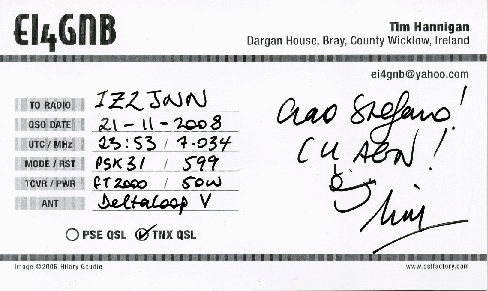 EI4GNB
Tim Hannigan
Dargan House, Bray, County Wicklow, Ireland
ei4gnb@yahoo.com
TO RADIO IZ2JNN
QSO DATE 21-11-2008
UTC / MHz 23:53 / 7.034
MODE / RST PSK31 / 599
TCVR / PWR FT2000 / 50W
ANT Deltaloop V
PSE QSL TNX QSL
Ciao Stefano!
CU AGN!
Tim
Image ©2006 Hilary Goudie
www.qslfactory.com